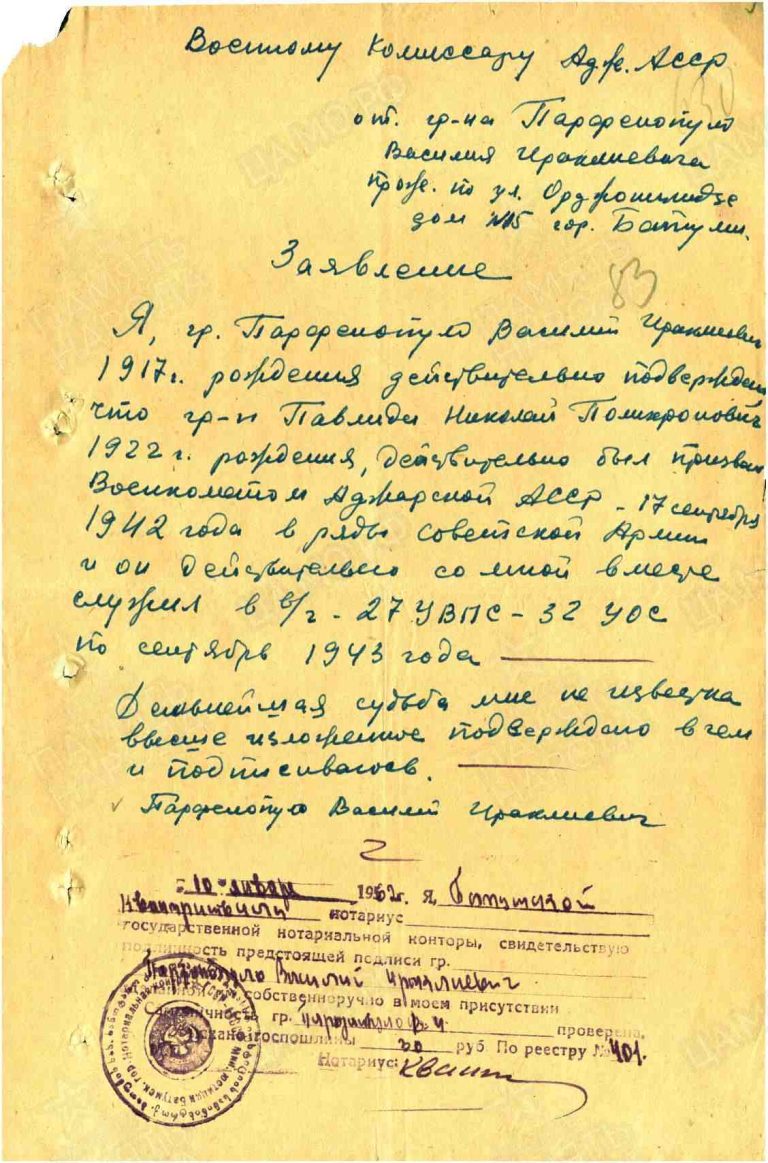 Военному Комиссару Адж. Асср
130
от. гр-на Парфенопуло
Василия Ираклиевича
прож. по ул. Орджоникидзе
дом №15 гор. Батуми.
Заявление
83
Я, гр. Парфенопуло Василий Ираклиевич
1917г. рождения действительно подверждаю
что гр-н Павлиди Николай Поликронович
1922 г. рождения, действительно был призван
Военкоматом Аджарской АССР - 17 сентября
1942 года в ряды Советской Армии
и он действительно со мной вместе
служил в в/г - 27 УВПС - 32 УОС
по сентябрь 1943 года
Дальнейшая судьба мне не известна
высше изложенное подверждаю в чем
и подписиваюсь.
Парфенопуло Василий Ираклиевич
10 января 1962г. Я, Батумской
нотариус
государственной нотариальной конторы, свидетельствую
подлинность предстоящей подписи гр.
Парфенопуло Василий Ираклиевич
собственноручно в моем присутствии
гр. проверена.
госпошлины руб По реестру № 401.
Нотариус: